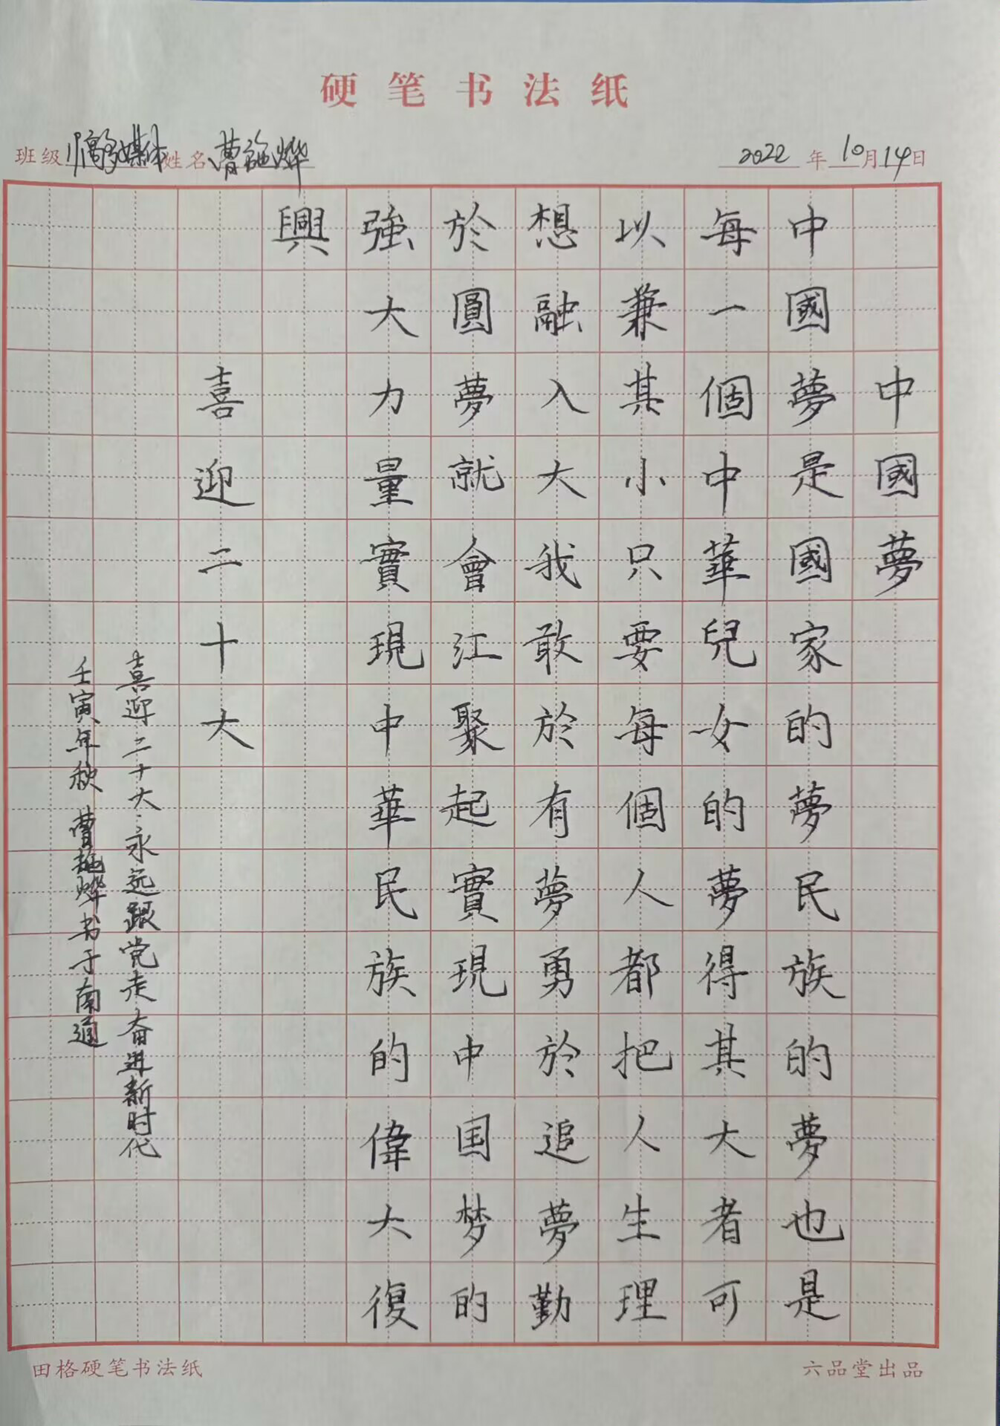 硬笔书法纸
班级 姓名 曹施烨 2022年10月14日
中國夢
中國夢是國家的夢民族的夢也是
每一個中華兒女的夢得其大者可
以兼其小只要每個人都把人生理
想融入大我敢於有夢勇於追夢勤
於圓夢就會江聚起實現中国梦的
強大力量實現中華民族的偉大復
興
喜迎二十大
喜迎二十大·永远跟党走奋进新时代
壬寅年秋 曹施烨书于南通
田格硬笔书法纸 六品堂出品